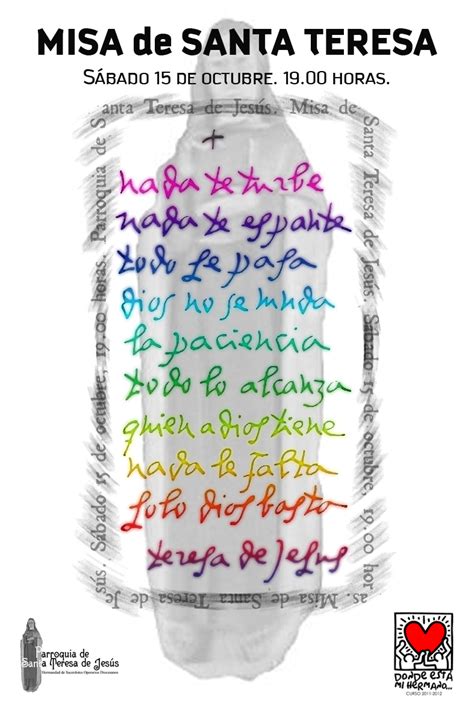 MISA de SANTA TERESA
SÁBADO 15 DE OCTUBRE. 19.00 HORAS.
Santa Teresa de Jesús. Misa de Santa Teresa de Jesús. Sábado 15 de octubre, 19.00 horas. Misa de Santa Teresa de Jesús. Sábado 15 de octubre, 19.00 horas. Parroquia de
+
nada te turbe
nada te espante
todo se pasa
dios no se muda
la paciencia
todo lo alcanza
quien a dios tiene
nada le falta
solo dios basta
teresa de Jesus
Parroquia de
Santa Teresa de Jesús
Hermandad de Sacerdotes Operarios Diocesanos
DONDE ESTÁ
MI HERMANO...
CURSO 2011-2012